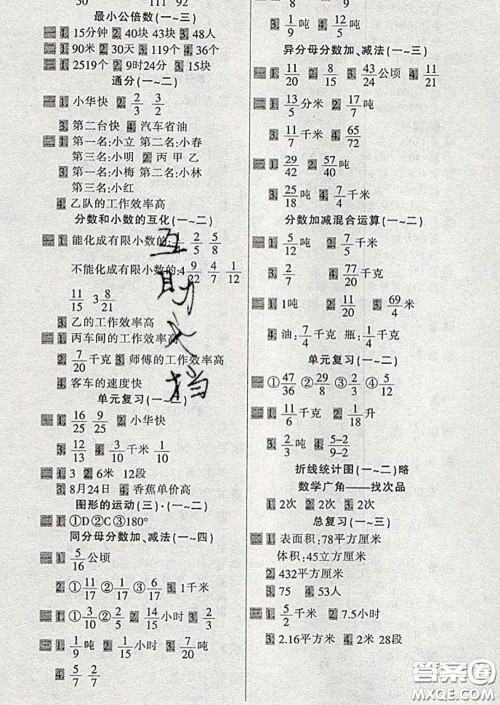 50 111 92
最小公倍数(一~三)
一 1. 15分钟 2. 40块 43块 3. 48人
二 1. 90米 2. 30天 3. 119个 4. 36个
三 1. 2519个 2. 9时24分 3. 15块
通分(一~二)
一 1. 小华快 2. 2/3 3/2
3. 第二台快 4. 汽车省油
二 1. 第一名:小立 第二名:小春
第三名:小明 2. 丙 甲 乙
3. 第一名:小梅 第二名:小林
第三名:小红
4. 乙队的工作效率高
分数和小数的互化(一~二)
一 1. 能化成有限小数的: 2/5 5/8
不能化成有限小数的:4 9/22 4/7 1/12
11/15 3 8/21
3. 乙的工作效率高
二 1. 丙车间的工作效率高
2. 7/20千克 3. 师傅的工作效率高
4. 客车的速度快
单元复习(一~二)
一 1. 16/25 9/25 2. 小华快
3. 12/13 4. 3/10千米 3/10
二 1. 3 2. 6米 12段
3. 8月24日 4. 香蕉单价高
图形的运动(三)·(一~二)
一 1. ①D②C③180°
同分母分数加、减法(一~四)
一 1. 5/16公顷
2. ①11/17 ②2/11 3. 1千米
二 1. ①3/10 ②2/5 2. 14/15小时
三 1. 1/9吨 2. 1/15小时 3. 7/20吨
4. 5/7 2/7
3. 1/9吨 4. 2/15吨
异分母分数加、减法(一~三)
一 1. 11/20 2. 8/15 3. 43/24公顷 4. 11/21
二 1. 13/5分米 2. 17/12吨
3. 11/7千米 4. 65/72
三 1. 29/42 2. 57/40吨
3. 25/18吨 4. 7/4千米
分数加减混合运算(一~二)
一 1. 5/12吨 2. 7/4千米
3. 2/7 4. 77/20千克
二 1. 1吨 2. 13/20吨 3. 69/4米
4. 油:7/4千克 瓶:1/4千克
单元复习(一~二)
一 1. ①47/36 ②29/8 ③1/2 ④3/2
二 1. 11/6千克 2. 1/18升
3. 2/9吨 4. 5-2/9-2
折线统计图(一~二)略
数学广角——找次品
一 1. 2次 2. 2次
总复习(一~三)
一 1. 表面积:78平方厘米
体积:45立方厘米
2. 432平方厘米
3. 75 4. 53人
二 1. 5/2千米 2. 7.5小时
3. 2.16平方米 4. 2米 28段
答案圈
MXQE.COM